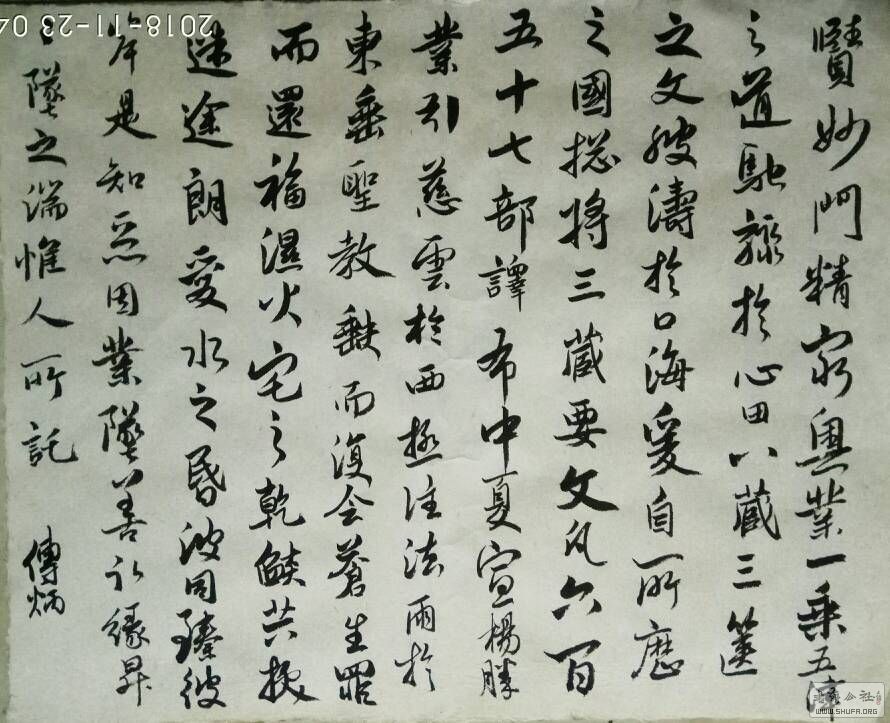 賢妙門精窮奧業一乘五律
之道馳驟於心田八藏三篋
之文波濤於口海爰自所歷
之國揔將三藏要文凡六百
五十七部譯布中夏宣楊勝
業引慈雲於西極注法雨於
東垂聖教缺而復全蒼生罪
而還福濕火宅之乾燄共拔
迷途朗愛水之昏波同臻彼
岸是知惡因業墜善以緣昇
〻墜之端惟人所託
傳炳
2018-11-23 04
WWW.SHUFA.ORG